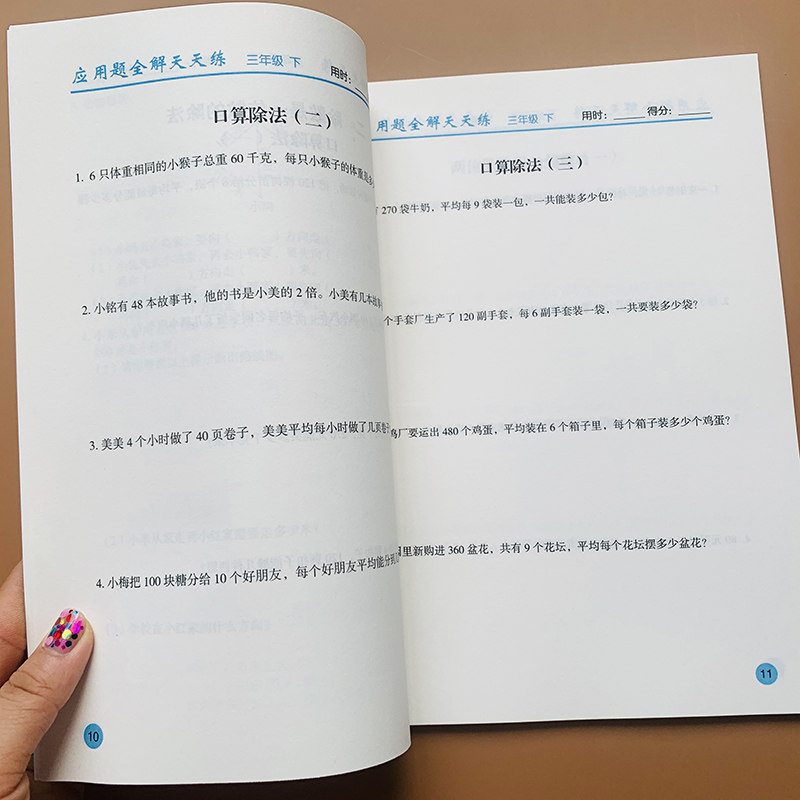 应用题全解天天练 三年级 下 用时:
口算除法（二）
1. 6 只体重相同的小猴子总重 60 千克，每只小猴子的体重是
2. 小铭有 48 本故事书，他的书是小美的 2 倍。小美有几本故
3. 美美 4 个小时做了 40 页卷子，美美平均每小时做了几页卷
4. 小梅把 100 块糖分给 10 个好朋友，每个好朋友平均能分到
10
用题全解天天练 三年级 下 用时: 得分:
口算除法（三）
270 袋牛奶，平均每 9 袋装一包，一共能装多少包?
个手套厂生产了 120 副手套，每 6 副手套装一袋，一共要装多少袋?
厂要运出 480 个鸡蛋，平均装在 6 个箱子里，每个箱子装多少个鸡蛋?
里新购进 360 盆花，共有 9 个花坛，平均每个花坛摆多少盆花?
11